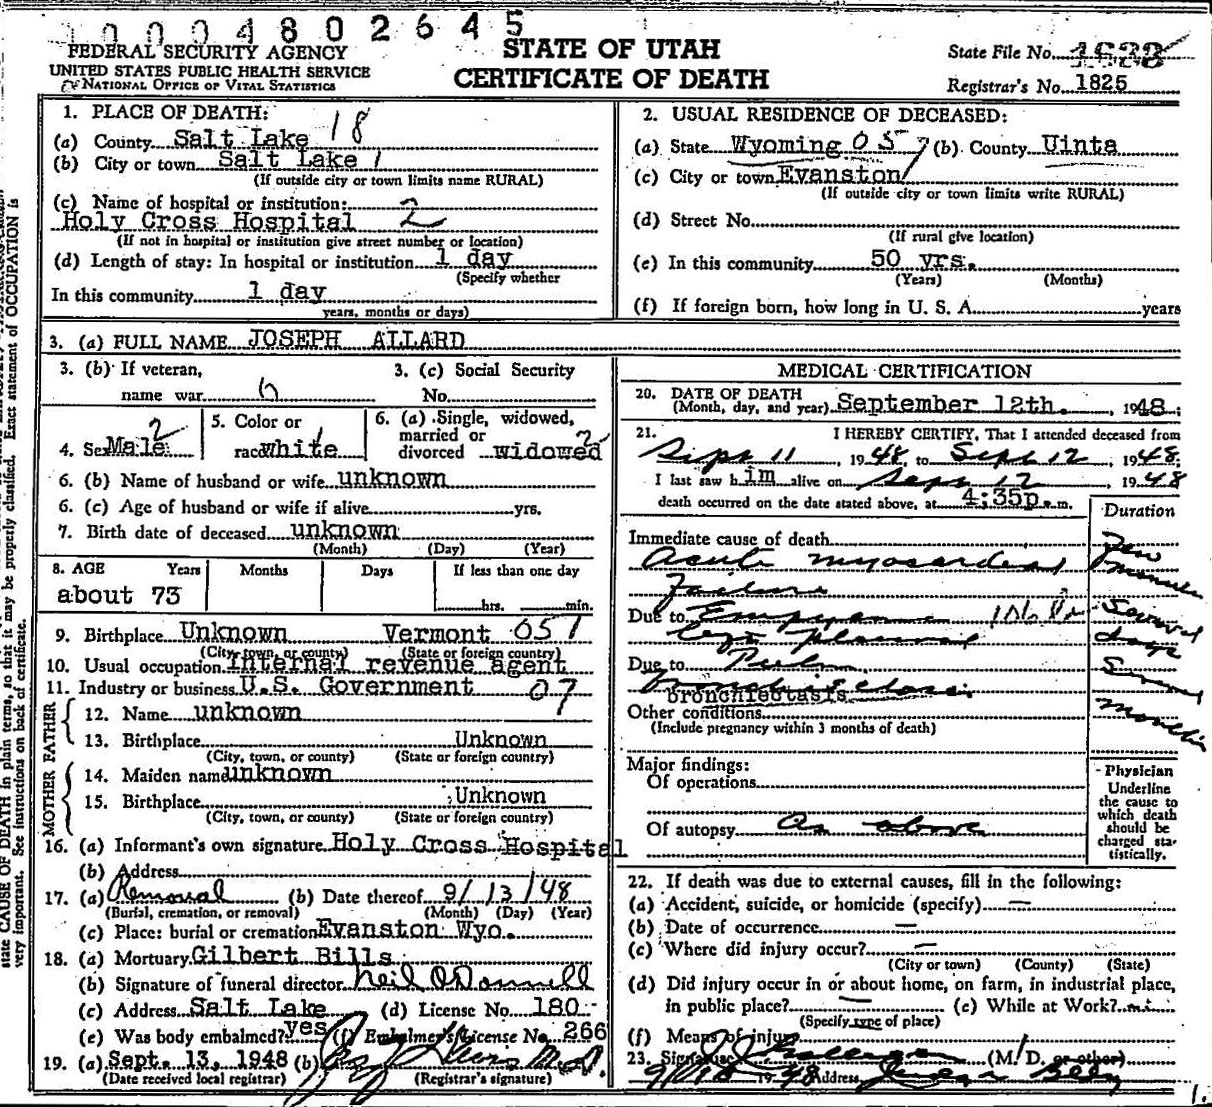 1000 4802645
FEDERAL SECURITY AGENCY
UNITED STATES PUBLIC HEALTH SERVICE
NATIONAL OFFICE OF VITAL STATISTICS
STATE OF UTAH
CERTIFICATE OF DEATH
State File No.
Registrar's No. 1825
1. PLACE OF DEATH:
(a) County Salt Lake 18
(b) City or town Salt Lake 1
(If outside city or town limits name RURAL)
(c) Name of hospital or institution:
Holy Cross Hospital 2
(If not in hospital or institution give street number or location)
(d) Length of stay: In hospital or institution 1 day
(Specify whether
In this community 1 day
years, months or days)
2. USUAL RESIDENCE OF DECEASED:
(a) State Wyoming 05 (b) County Uinta
(c) City or town Evanston
(If outside city or town limits write RURAL)
(d) Street No.
(If rural give location)
(e) In this community 50 yrs.
(Years) (Months)
(f) If foreign born, how long in U. S. A. years
3. (a) FULL NAME JOSEPH ALLARD
3. (b) If veteran,
name war
3. (c) Social Security
No.
4. Sex Male 2
5. Color or
race white 1
6. (a) Single, widowed,
married or
divorced widowed 2
6. (b) Name of husband or wife unknown
6. (c) Age of husband or wife if alive yrs.
7. Birth date of deceased unknown
(Month) (Day) (Year)
8. AGE Years Months Days If less than one day
about 73 hrs. min.
9. Birthplace Unknown Vermont 051
(City, town, or county) (State or foreign country)
10. Usual occupation Internal revenue agent
11. Industry or business U.S. Government 07
FATHER
12. Name unknown
13. Birthplace Unknown
(City, town, or county) (State or foreign country)
MOTHER
14. Maiden name unknown
15. Birthplace Unknown
(City, town, or county) (State or foreign country)
16. (a) Informant's own signature Holy Cross Hospital
(b) Address
17. (a) Removal (b) Date thereof 9/13/48
(Burial, cremation, or removal) (Month) (Day) (Year)
(c) Place: burial or cremation Evanston Wyo.
18. (a) Mortuary Gilbert Bills
(b) Signature of funeral director Neil O'Donnell
(c) Address Salt Lake (d) License No. 180
(e) Was body embalmed? yes (f) Embalmer's License No. 266
19. (a) Sept. 13, 1948 (b) M.D.
(Date received local registrar) (Registrar's signature)
MEDICAL CERTIFICATION
20. DATE OF DEATH
(Month, day, and year) September 12th. , 1948.
21. I HEREBY CERTIFY, That I attended deceased from
Sept 11 , 1948 to Sept 12 , 1948.
I last saw him alive on Sept 12 , 1948
death occurred on the date stated above, at 4:35p. m.
Duration
Immediate cause of death
Acute myocardial
Failure
Few
minutes
Due to Empyema
left pleural
Several
days
Due to Pulm
bronchiectasis
bronchiectasis
Several
months
Other conditions
(Include pregnancy within 3 months of death)
Major findings:
Of operations
Of autopsy As above
Physician
Underline
the cause to
which death
should be
charged sta-
tistically.
22. If death was due to external causes, fill in the following:
(a) Accident, suicide, or homicide (specify) —
(b) Date of occurrence —
(c) Where did injury occur? —
(City or town) (County) (State)
(d) Did injury occur in or about home, on farm, in industrial place,
in public place? — (e) While at Work?
(Specify type of place)
(f) Means of injury
23. Signature (M. D. or other)
1948 Address Judge Bldg
state CAUSE OF DEATH in plain terms, so that it may be properly classified. Exact statement of OCCUPATION is
very important. See instructions on back of certificate.